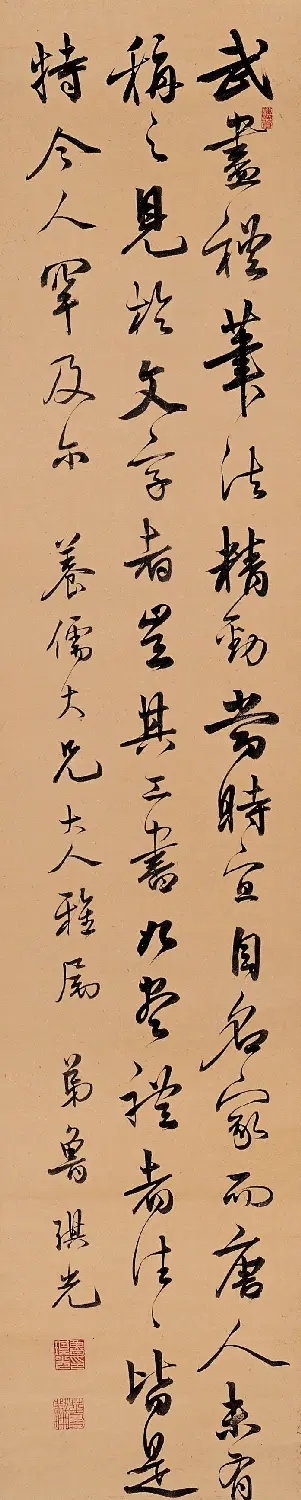 武盡禮筆法精勁當時宜自名家而唐人未有
稱之見於文字者豈其工書如盡禮者往往皆是
特今人罕及尔
養儒大兄大人雅屬
弟魯琪光